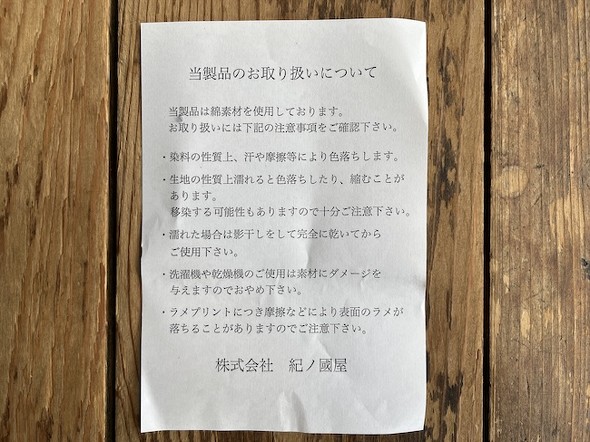 当製品のお取り扱いについて
当製品は綿素材を使用しております。
お取り扱いには下記の注意事項をご確認下さい。
・染料の性質上、汗や摩擦等により色落ちします。
・生地の性質上濡れると色落ちしたり、縮むことが
あります。
移染する可能性もありますので十分ご注意下さい。
・濡れた場合は影干しをして完全に乾いてから
ご使用下さい。
・洗濯機や乾燥機のご使用は素材にダメージを
与えますのでおやめ下さい。
・ラメプリントにつき摩擦などにより表面のラメが
落ちることがありますのでご注意下さい。
株式会社 紀ノ國屋